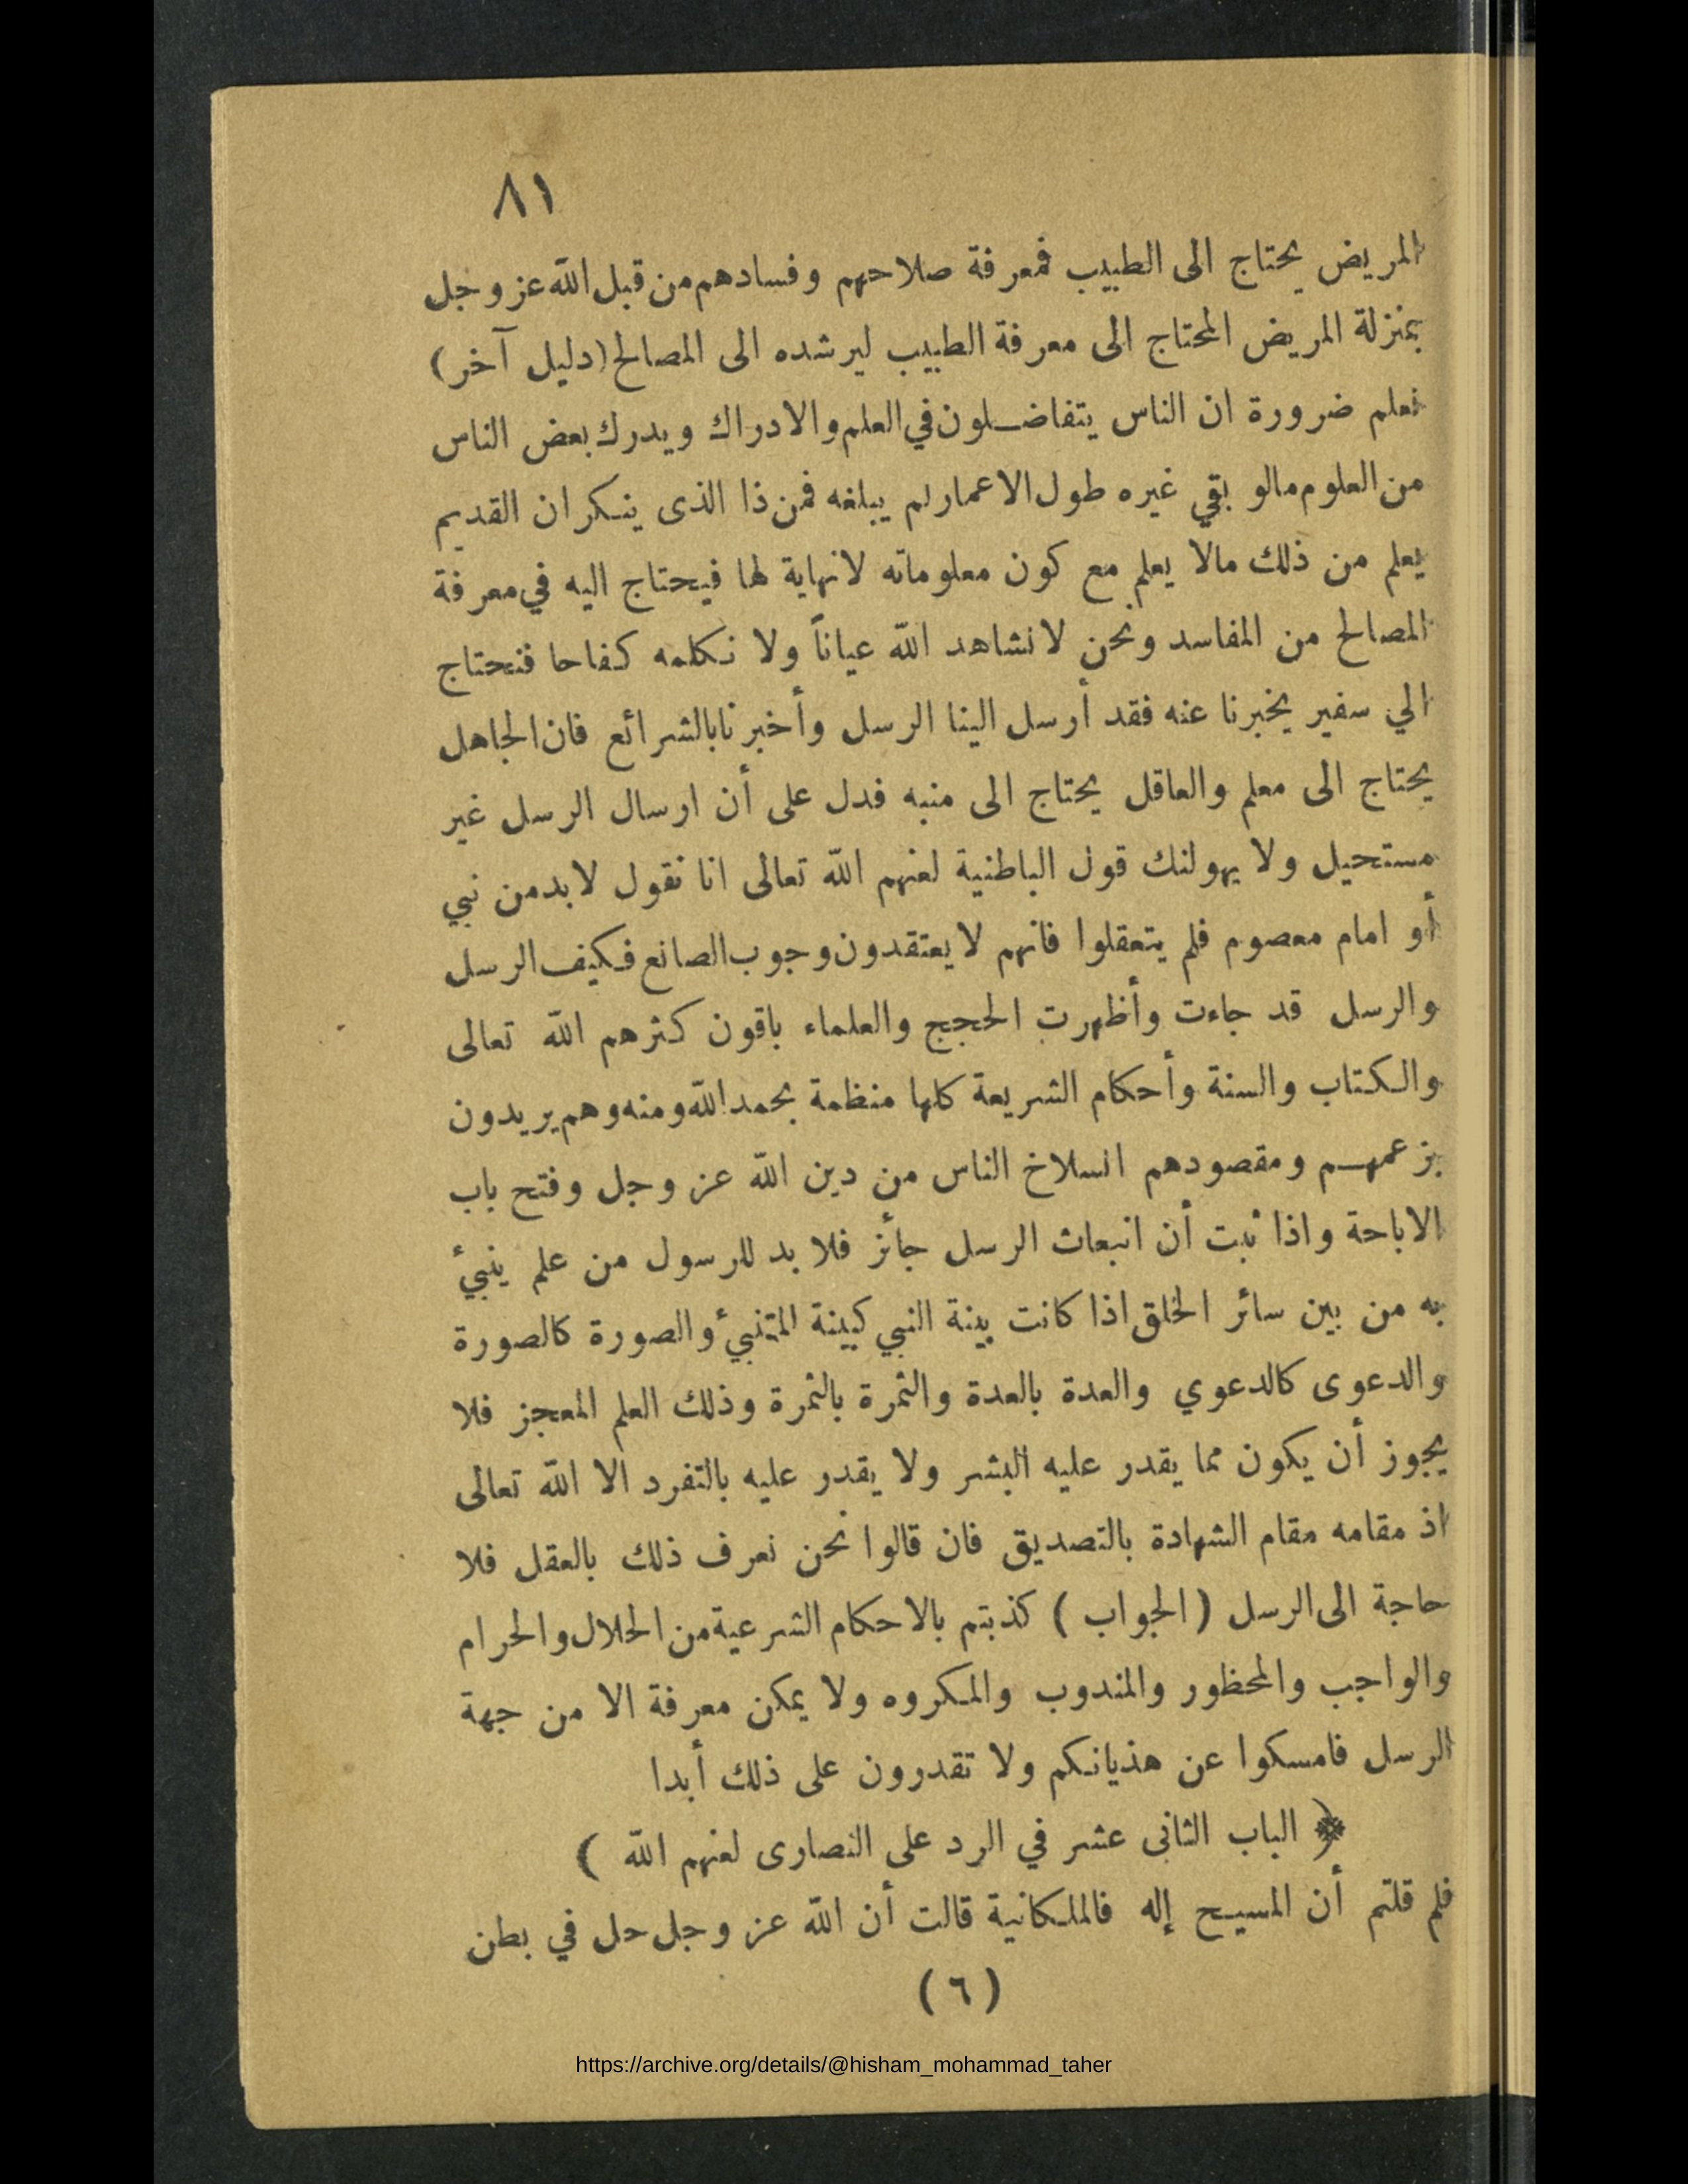 ٨١
المريض يحتاج الى الطبيب فمعرفة صلاحهم وفسادهم من قبل الله عز وجل
بمنزلة المريض المحتاج الى معرفة الطبيب ليرشده الى المصالح (دليل آخر)
نعلم ضرورة ان الناس يتفاضلون في العلم والادراك ويدرك بعض الناس
من العلوم مالو بقي غيره طول الاعمار لم يبلغه فمن ذا الذى ينكر ان القديم
يعلم من ذلك مالا يعلم مع كون معلوماته لانهاية لها فيحتاج اليه في معرفة
المصالح من المفاسد ونحن لانشاهد الله عياناً ولا نكلمه كفاحا فنحتاج
الي سفير يخبرنا عنه فقد أرسل الينا الرسل وأخبرنا بالشرائع فان الجاهل
يحتاج الى معلم والعاقل يحتاج الى منبه فدل على أن ارسال الرسل غير
مستحيل ولا يهولنك قول الباطنية لعنهم الله تعالى انا نقول لابد من نبي
أو امام معصوم فلم يتعقلوا فانهم لا يعتقدون وجوب الصانع فكيف الرسل
والرسل قد جاءت وأظهرت الحجج والعلماء باقون كثرهم الله تعالى
والكتاب والسنة وأحكام الشريعة كلها منظمة بحمد الله ومنه وهم يريدون
بزعمهم ومقصودهم انسلاخ الناس من دين الله عز وجل وفتح باب
الاباحة واذا ثبت أن انبعاث الرسل جائز فلا بد للرسول من علم ينبئ
به من بين سائر الخلق اذا كانت بينة النبي كبينة المتنبئ والصورة كالصورة
والدعوى كالدعوي والعدة بالعدة والثمرة بالثمرة وذلك العلم المعجز فلا
يجوز أن يكون مما يقدر عليه البشر ولا يقدر عليه بالتفرد الا الله تعالى
اذ مقامه مقام الشهادة بالتصديق فان قالوا نحن نعرف ذلك بالعقل فلا
حاجة الى الرسل ( الجواب ) كذبتم بالاحكام الشرعية من الحلال والحرام
والواجب والمحظور والمندوب والمكروه ولا يمكن معرفة الا من جهة
الرسل فامسكوا عن هذيانكم ولا تقدرون على ذلك أبدا
﴿ الباب الثانى عشر في الرد على النصارى لعنهم الله )
فلم قلتم أن المسيح إله فالملكانية قالت أن الله عز وجل حل في بطن
( ٦ )
https://archive.org/details/@hisham_mohammad_taher